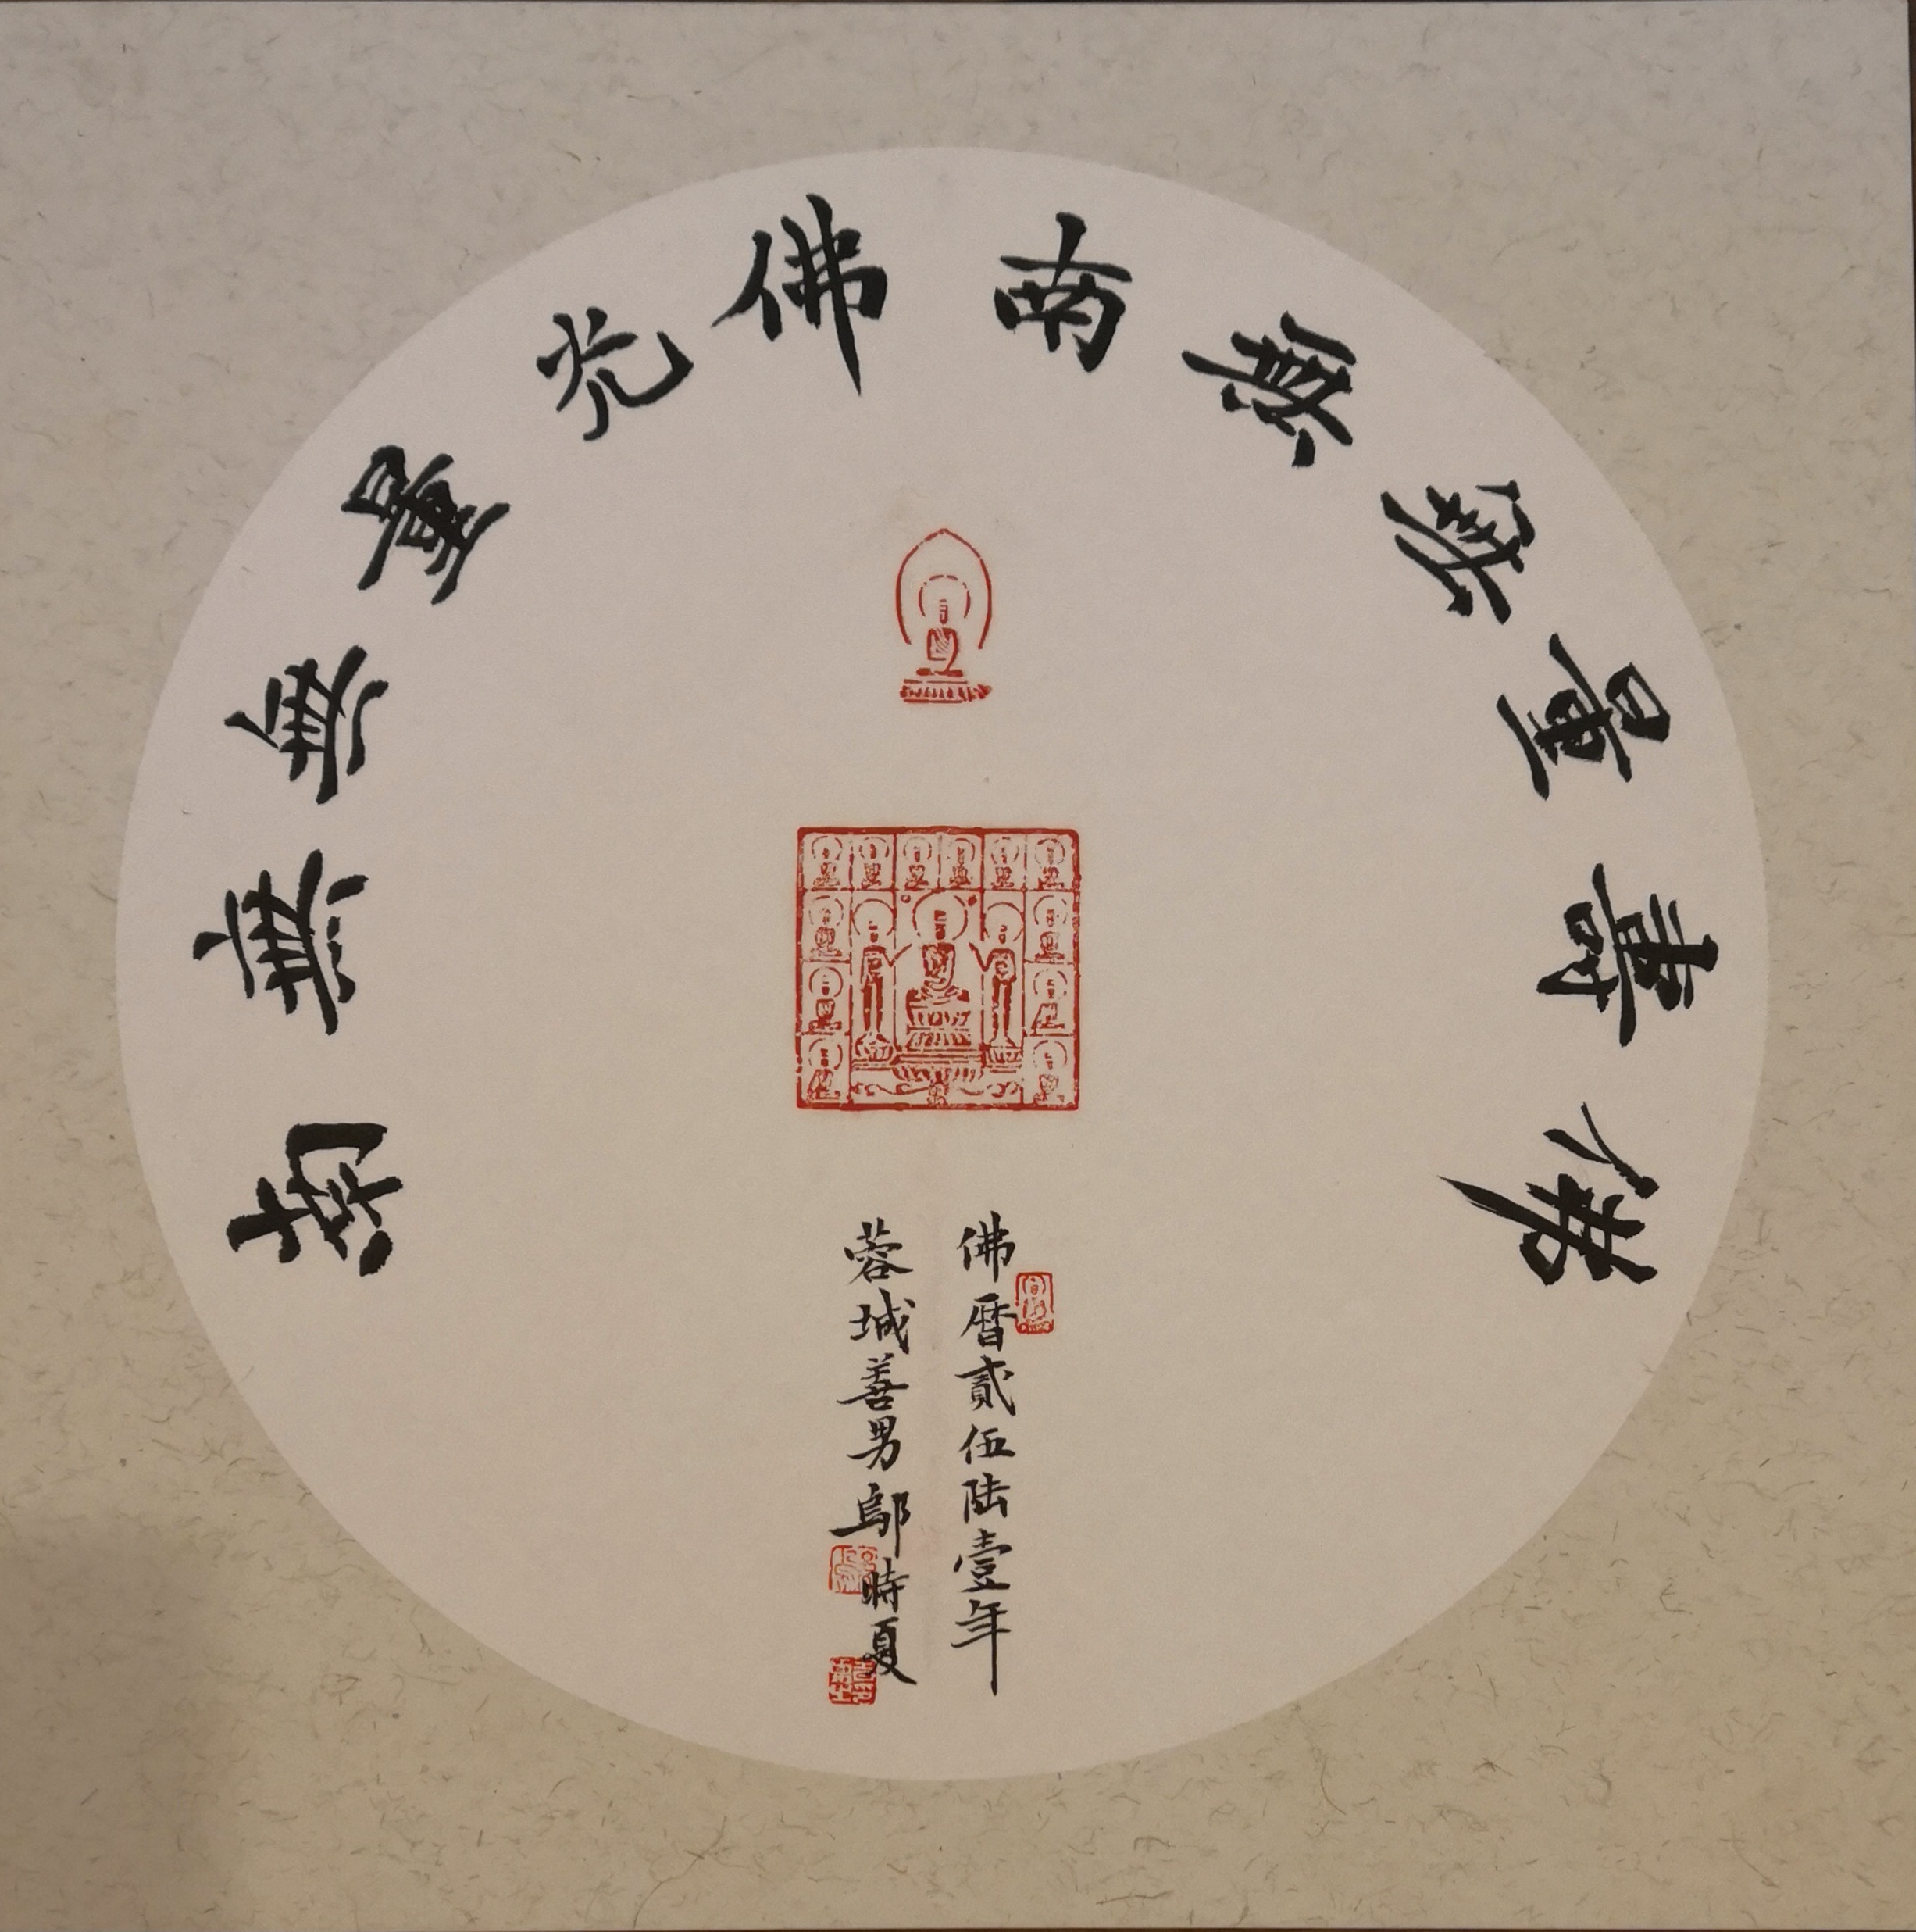 南無無量光佛
南無無量壽佛
佛暦貳伍陸壹年
蓉城善男鄔時夏